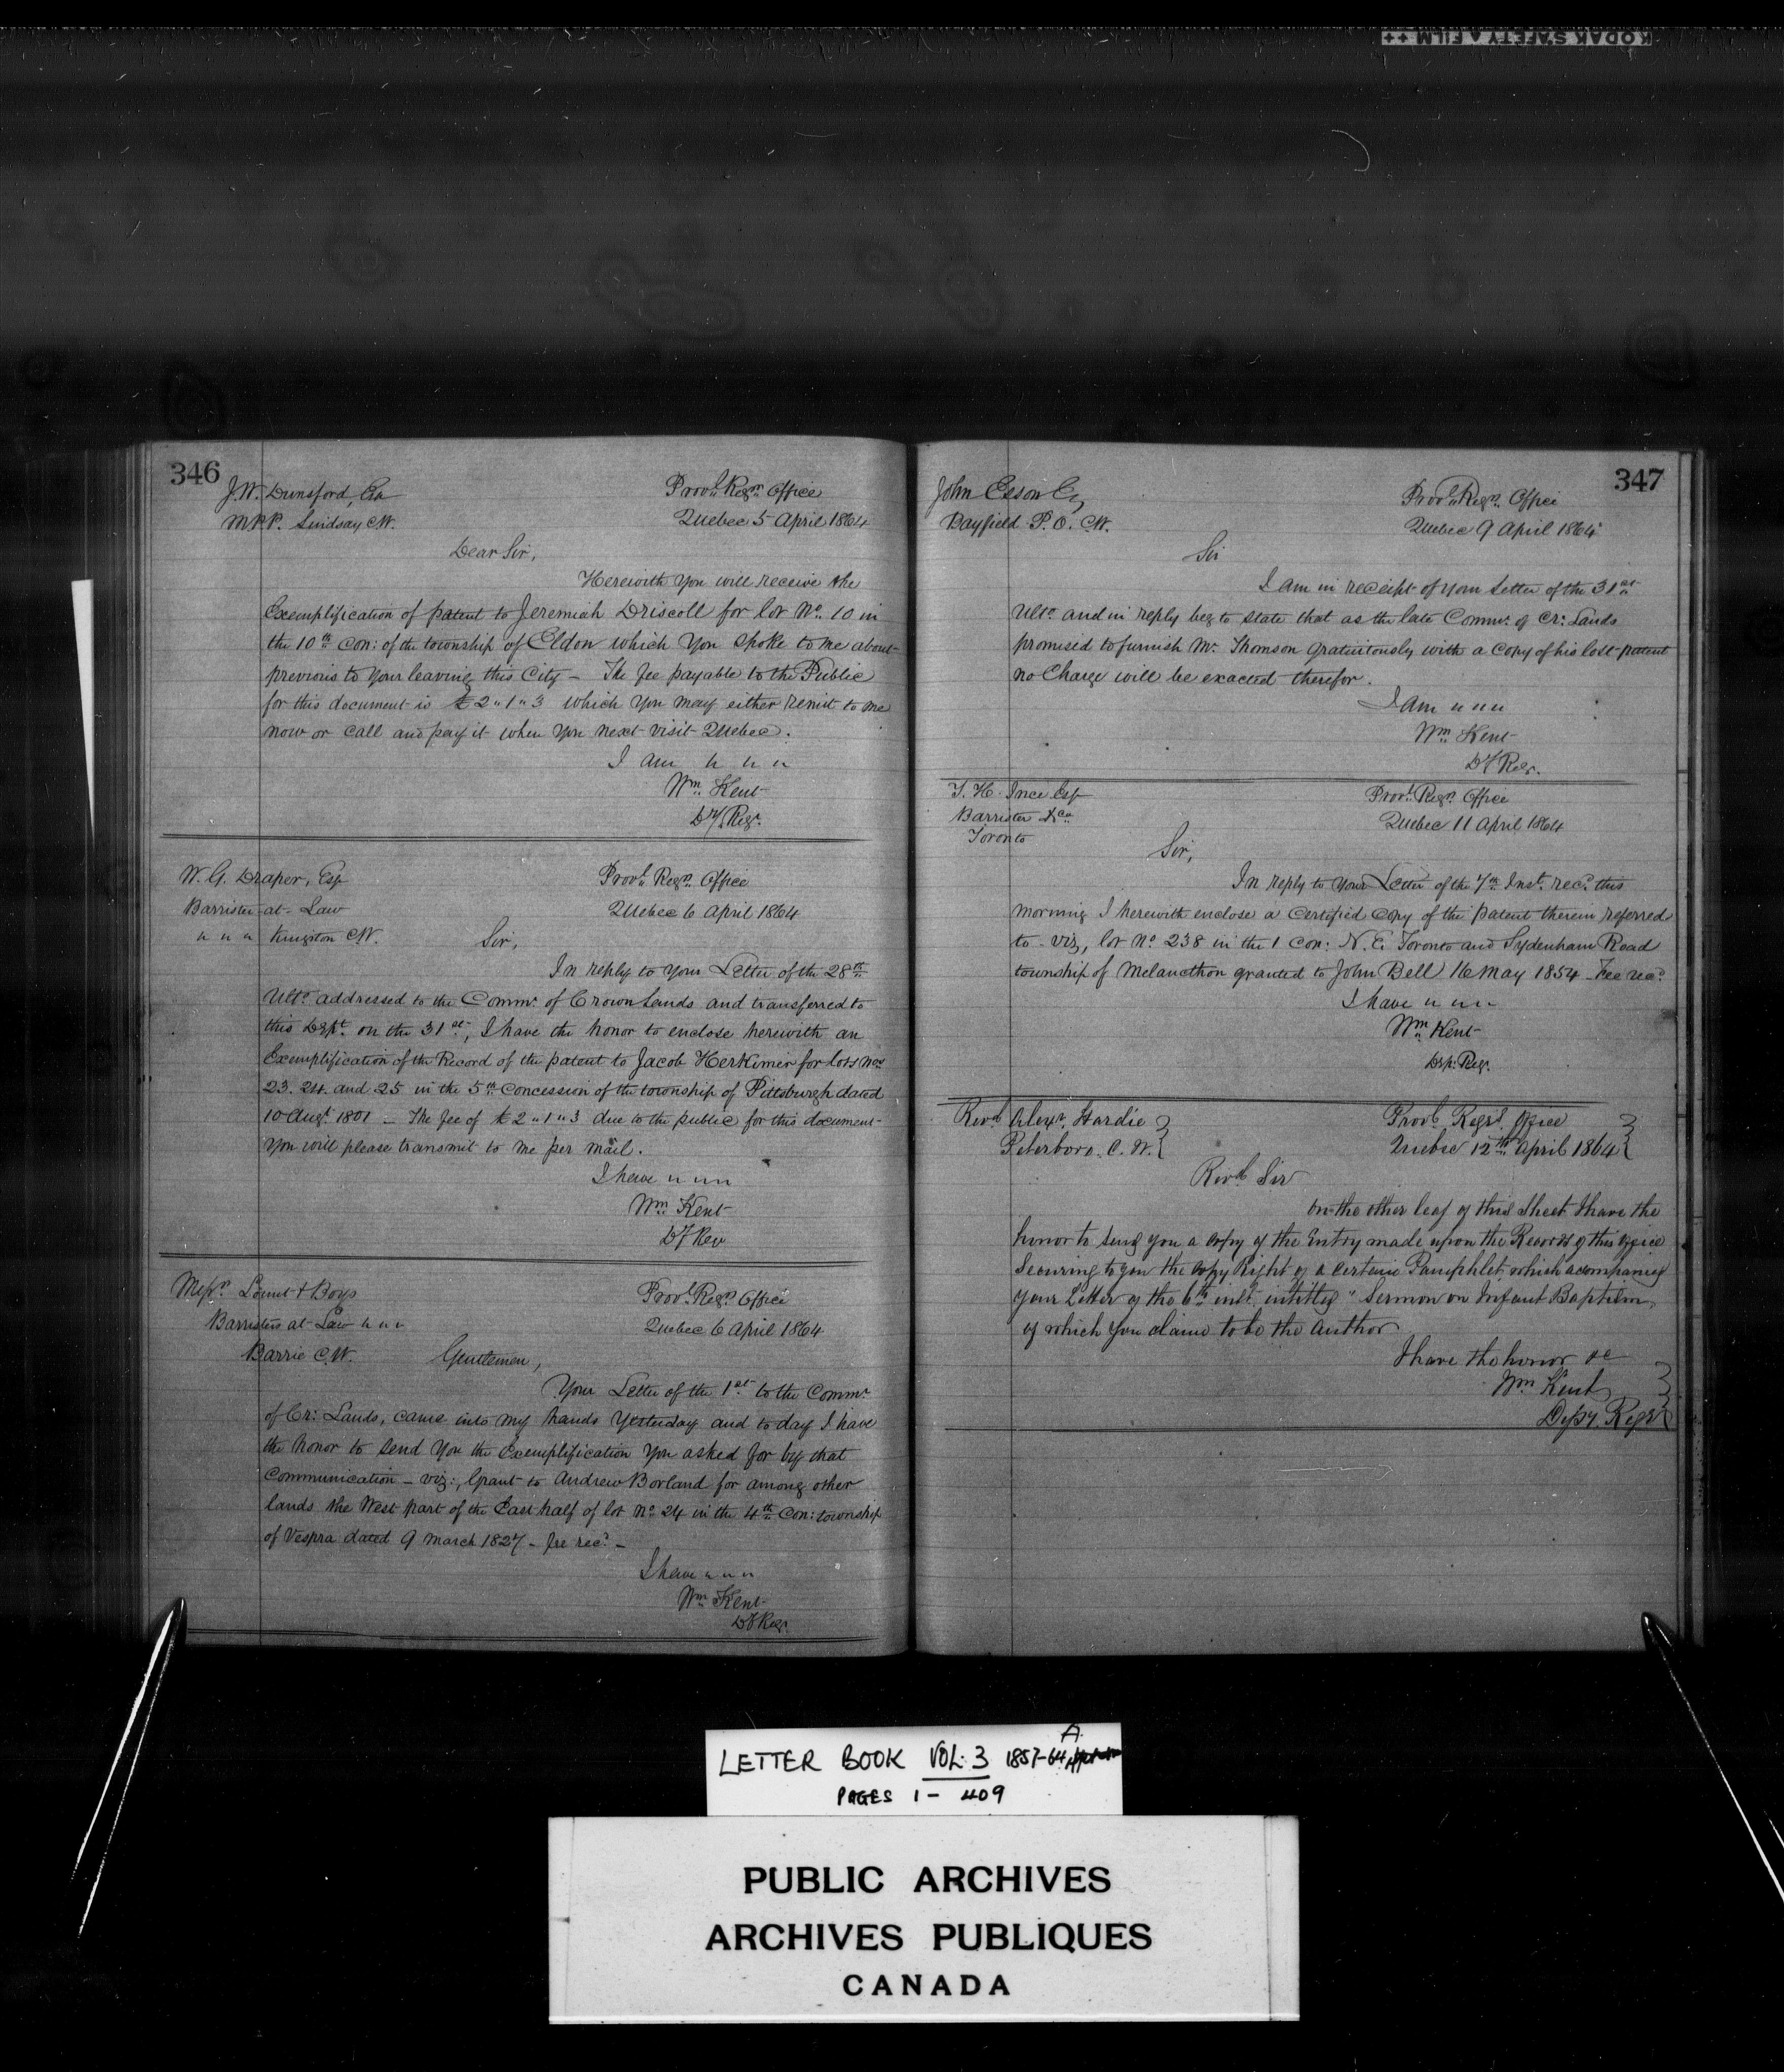 KODAK SAFETY A FILM ++
346
J.W. Dunsford, Esq
M.P.P. Lindsay C.W.
Provl. Regrs. Office
Quebec 5 April 1864
Dear Sir,
Herewith You will receive the
Exemplification of patent to Jeremiah Driscoll for lot No. 10 in
the 10th Con: of the township of Eldon which You spoke to me about
previous to Your leaving this City – The fee payable to the Public
for this document is £2 " 1 " 3 which You may either remit to me
now or call and pay it when You next visit Quebec.
I am " " "
Wm. Kent
Dy. Regr.
W. G. Draper, Esq
Barrister-at-Law
" " " Kingston C.W.
Provl. Regrs. Office
Quebec 6 April 1864
Sir,
In reply to Your Letter of the 28th
Ulto. addressed to the Commr. of Crown Lands and transferred to
this Dept. on the 31st, I have the honor to enclose herewith an
Exemplification of the Record of the patent to Jacob Herkimer for lots Nos
23. 24. and 25 in the 5th Concession of the township of Pittsburgh dated
10 Augt. 1801 – The fee of £2 " 1 " 3 due to the public for this document
You will please transmit to me per mail.
I have " " "
Wm. Kent
Dy Reg
Messrs. Lount & Boys
Barristers at Law " " "
Barrie C.W.
Provl. Regrs. Office
Quebec 6 April 1864
Gentlemen,
Your Letter of the 1st to the Commr.
of Cr: Lands, came into my hands Yesterday and to day I have
the honor to send You the Exemplification You asked for by that
Communication – viz:, Grant to Andrew Borland for among other
lands the West part of the East half of lot No. 24 in the 4th Con: township
of Vespra dated 9 March 1827 – fee recd. –
I have " " "
Wm. Kent
Dy Regr.
347
John Esson Esq
Bayfield P.O. C.W.
Provl. Regrs. Office
Quebec 9 April 1864
Sir
I am in receipt of your Letter of the 31st
Ulto. and in reply beg to state that as the late Commr. of Cr: Lands
promised to furnish Mr. Thomson gratuitously with a Copy of his lost patent
no Charge will be exacted therefor.
I am " " "
Wm. Kent
Dy Regr.
T. H. Ince Esq
Barrister &ca
Toronto
Provl. Regrs. Office
Quebec 11 April 1864
Sir,
In reply to Your Letter of the 7th Inst. recd. this
morning I herewith enclose a Certified Copy of the patent therein referred
to – viz, lot No. 238 in the 1 Con: N.E. Toronto and Sydenham Road
township of Melancthon granted to John Bell 16 May 1854 – Fee recd.
I have " " "
Wm. Kent
Dep. Regr.
Revd. Alexr. Hardie
Peterboro. C.W.
Provl. Regrs. Office
Quebec 12th April 1864
Revd. Sir
On the other leaf of this Sheet I have the
honor to send you a copy of the Entry made upon the Records of this office
Securing to you the Copy Right of a certain Pamphlet, which accompanied
your Letter of the 6th inst. intitled "Sermon on Infant Baptism,
of which you claim to be the Author
I have the honor &c
Wm Kent
Depy. Regr
LETTER BOOK VOL. 3 1857-64 A
PAGES 1 - 409
PUBLIC ARCHIVES
ARCHIVES PUBLIQUES
CANADA